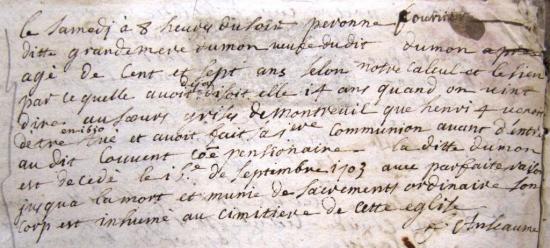 le samedi a 8 heures du soir peronne fournier
ditte grandemere dumon veufe dudit dumon
agé de Cent et sept ans selon notre calcul et le sien
par ce quelle avoit disoit elle 14 ans quand on vint
dire au sœurs grises de montreuil que henri 4 venoit
detre en 1610 tué et avoit fait sa 1ere Communion avant d'entrer
au dit Couvent coe pensionaire la ditte dumon
est decedé le 15e de septembre 1703 avec parfaite raison
jusqua la mort et munie de sacrements ordinaire son
corp est inhumé au cimitiere de cette eglise